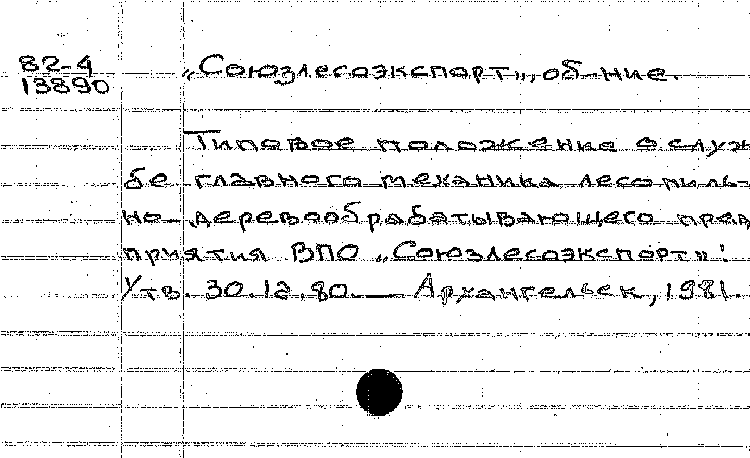 82-4
13890
„Союзлесоэкспорт", об-ние.
Типовое положение о служ
бе главного механика лесопиль-
но-деревообрабатывающего пред
приятия ВПО „Союзлесоэкспорт":
Утв. 30.12.80. — Архангельск, 1981.